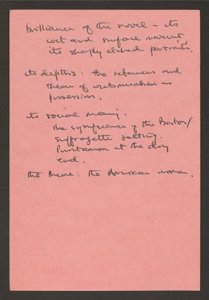 brilliance of the novel – its
wit and surface
its sharply etched portraits.
its depths: the
theme of
possession.
its social meaning.
the significance of the Boston/
Suffragette setting.
Puritanism at the dry
end.
the theme: the American woman.